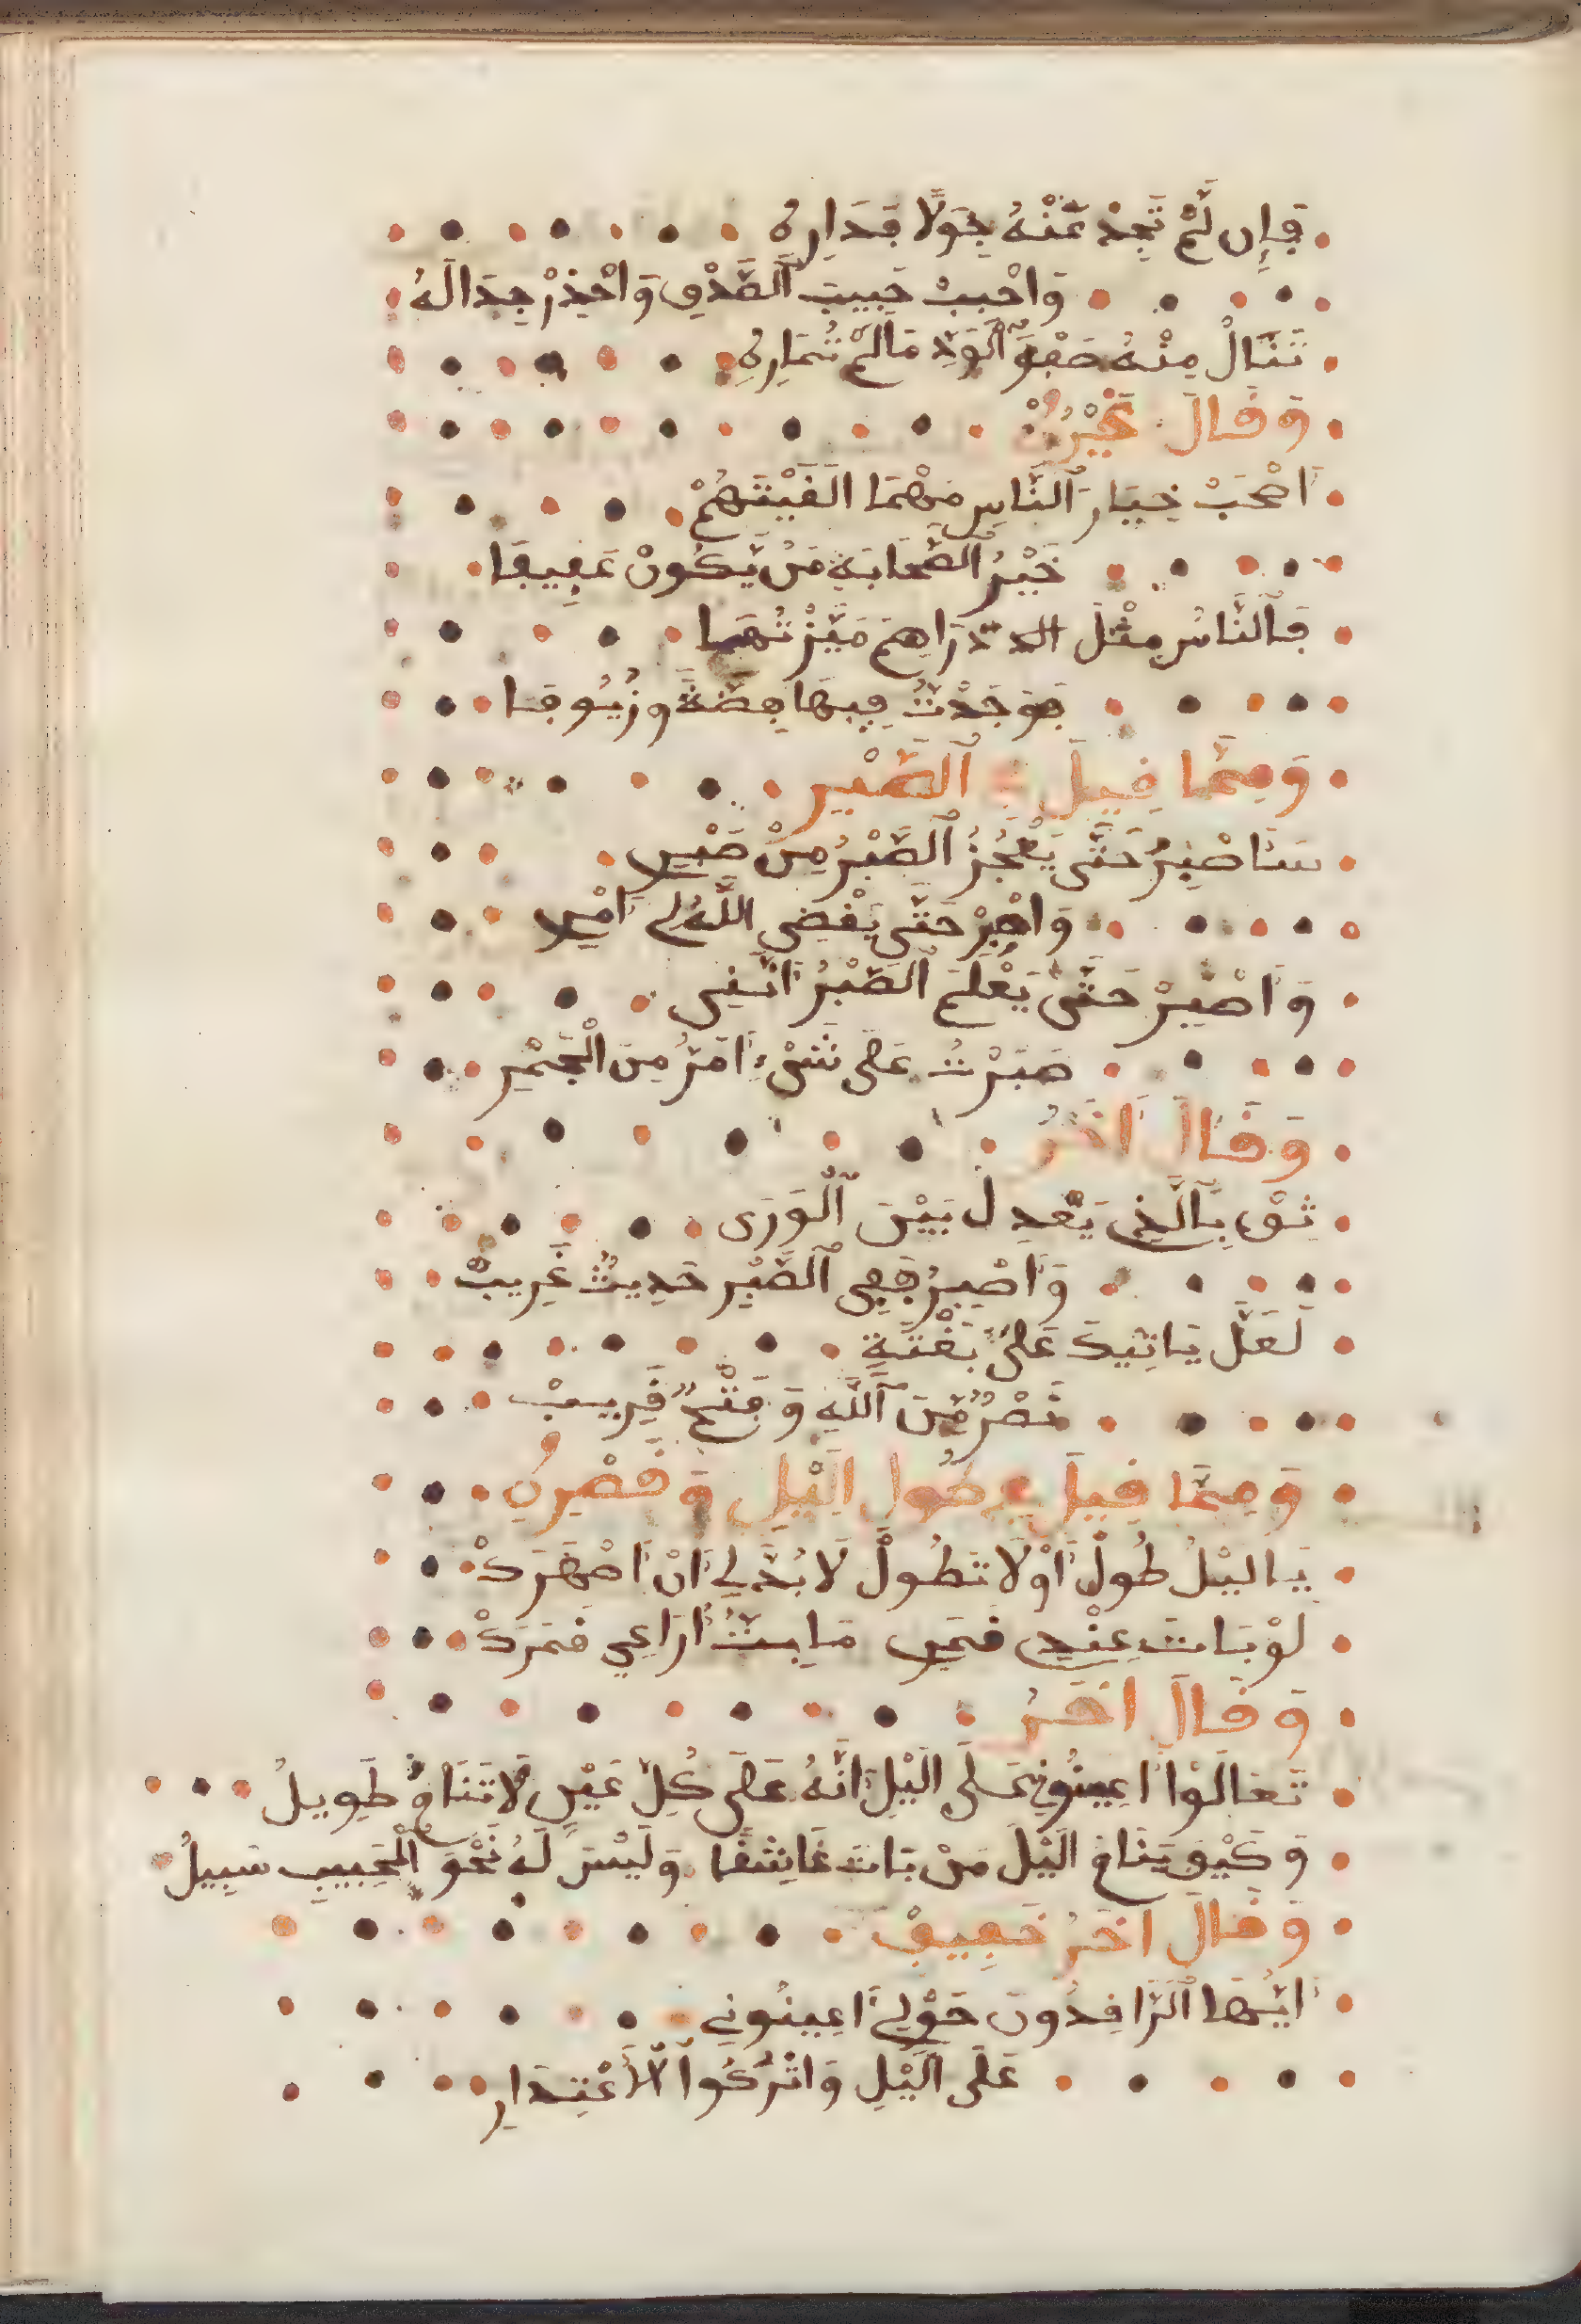 فَإِن لَّمْ تَجِدْ عَنْهُ حِوَلًا فَدَارِهُ
وَاحْبِبْ حَبِيبَ ٱلصِّدْقِ وَاحْذِرْ جِدَالَهُ
تَنَالُ مِنْهُ صَفْوَ ٱلْوَدِّ مَالَمْ تُمَارِهِ
وَقَالَ غَيْرُهُ
اَصْحَبْ خِيَارَ ٱلنَّاسِ مَهْمَا الَقَيْتَهُمْ
خَيْرُ ٱلصَّحَابَةِ مَنْ يَّكُونْ عَفِيفَا
فَٱلنَّاسُ مِثْلَ الدَّرَاهِمَ مَيَّزْتُهَا
فَوَجَدْتُ فِيهَا فِضَّةً وزُيُوفَا
وَمِمَّا فِيلَ فِے ٱلصَّبْرِ
سَنَاصْبِرُ حَتَّى يَعْجُزُ ٱلصَّبْرُ مِنْ صَبْرِے
وَاصْبِرْ حَتَّى يَقْضِي اللَّهُ لِے اَمْرِے
وَاَصْبِرْ حَتَّى يَعْلَمَ ٱلصَّبْرُ اَنَّنِى
صَبَرْتُ عَلَى شَىْءٍ اَمَرُّ مِنَ الْجَمْرِ
وَقَالَ اٰخَرُ
ثِقْ بِٱلَّذِے يَعْدِل بَيْنَ ٱلْوَرَى
وَاَصْبِرْ فَفِى ٱلصَّبْرِ حَدِيثٌ غَرِيبٌ
لَعَلَّ يَاتِيكَ عَلَى بَغْتَةٍ
نَصْرٌ مِّنَ ٱللَّهِ وَفَتْحٌ قَرِيبْ
وَمِمَّا قِيلَ فِے طُولِ الَّيْلِ وَقَصْرِهِ
يَالَيْلُ طُولْ اَوْ لَا تَطُولْ لَا بُدَّ لِے اَنْ اَصْهَرَكْ
لَوْ بَاتَ عِنْدِے قَمَرِے مَابِتُّ اُرَاعِي قَمَرَكْ
وَقَالَ اخَرُ
تَعَالَوْا اَعِينُونِے عَلَى الَّيْلِ اِنَّهُ عَلَى كُلِّ عَيْنٍ لَا تَنَامُ طَوِيلُ
وَكَيْفَ يَنَامُ الَّيْلَ مَنْ بَاتَ عَاشِقًا وَلَيْسَ لَهُ نَحْوَ الْحَبِيبِ سَبِيلُ
وَقَالَ اٰخَرُ خَفِيفْ
اَيُّهَا ٱلرَّاقِدُونَ حَوْلِے اَعِينُونِے
عَلَى الَّيْلِ وَاتْرُكُوا ٱلاِعْتِذَارِ